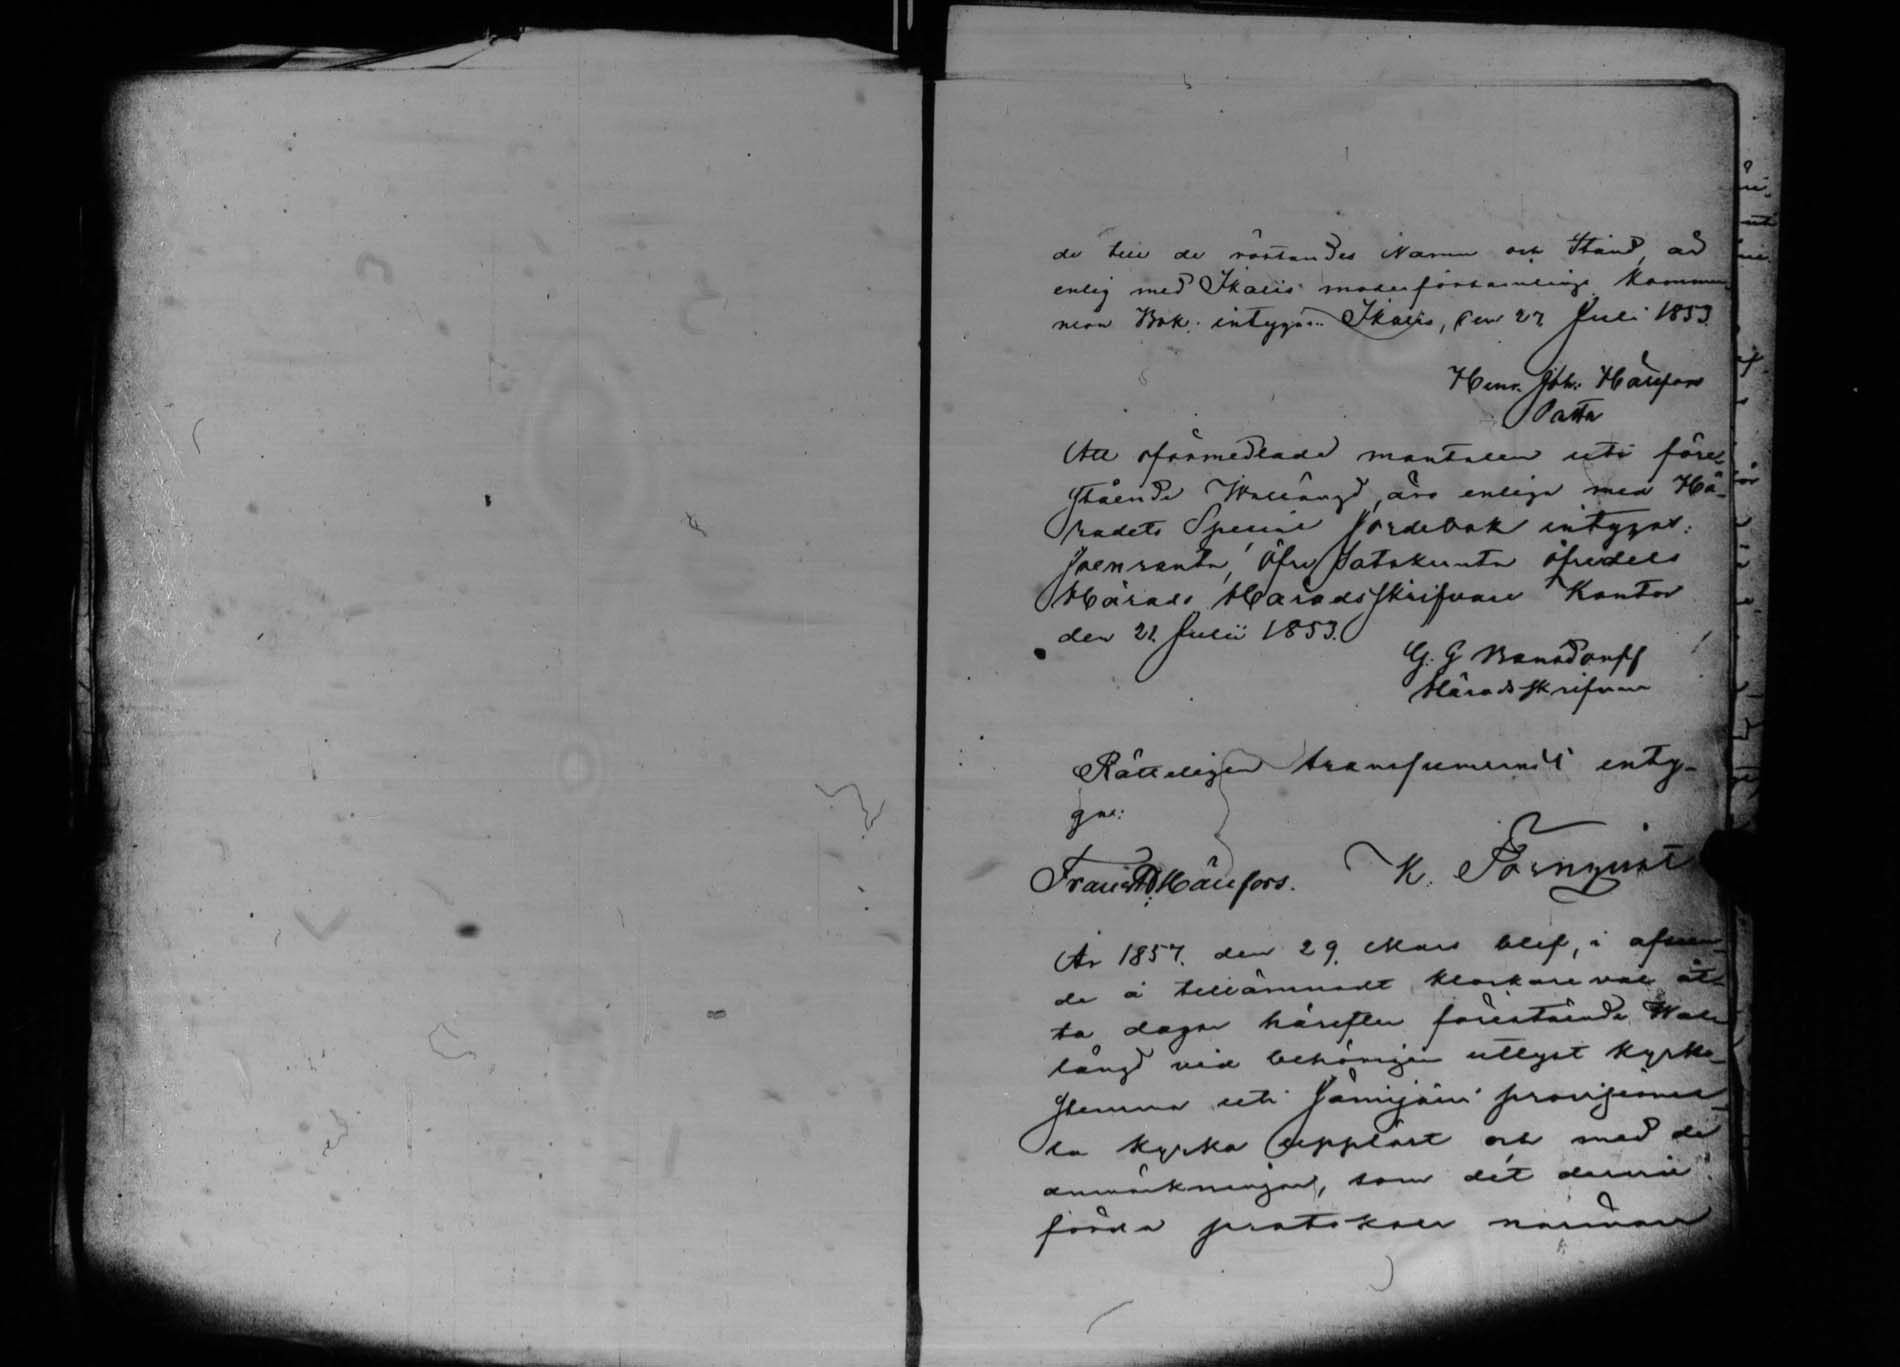 de till de röstandes Namn och Stånd, är
enlig med Ikalis moderförsamlings Kommu-
nion Bok. intygar. Ikalis, den 27 Juli 1853.
Henr. Joh: Hällfors
Att oförmedlade mantalen uti före-
stående Wallängd, äro enliga med Hä-
radets Special Jordebok intygar:
Joenranta, Öfre Satakunta öfredels
Härads Häradsskrifvare Kontor
den 21 Julii 1853.
G. G Bonsdorff
Häradsskrifvare
Rätteligen transsumeradt inty-
gar:
Frans Hällfors. K. Törnqvist
År 1857. den 29. Mars blef, i afseen-
de å tillämnadt klockare val åt-
ta dagar härefter förestående Wal-
längd vid behörigen utlyst kyrko-
stemma uti Jämijärvi provisionel-
la kyrka uppläst och med de
anmärkningar, som det dervid
förda protokoll närmare